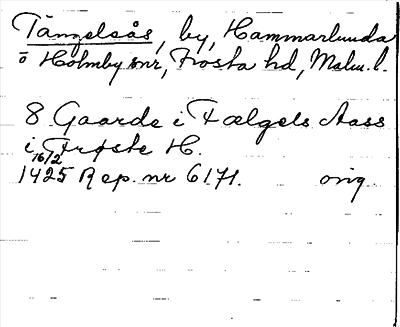 Tängelsås, by, Hammarlunda
o Holmby snr, Frosta hd, Malm. l.
8 Gaarde i Tælgels Aass
i Frøste H.
16/2
1425 Rep. nr 6171. orig.